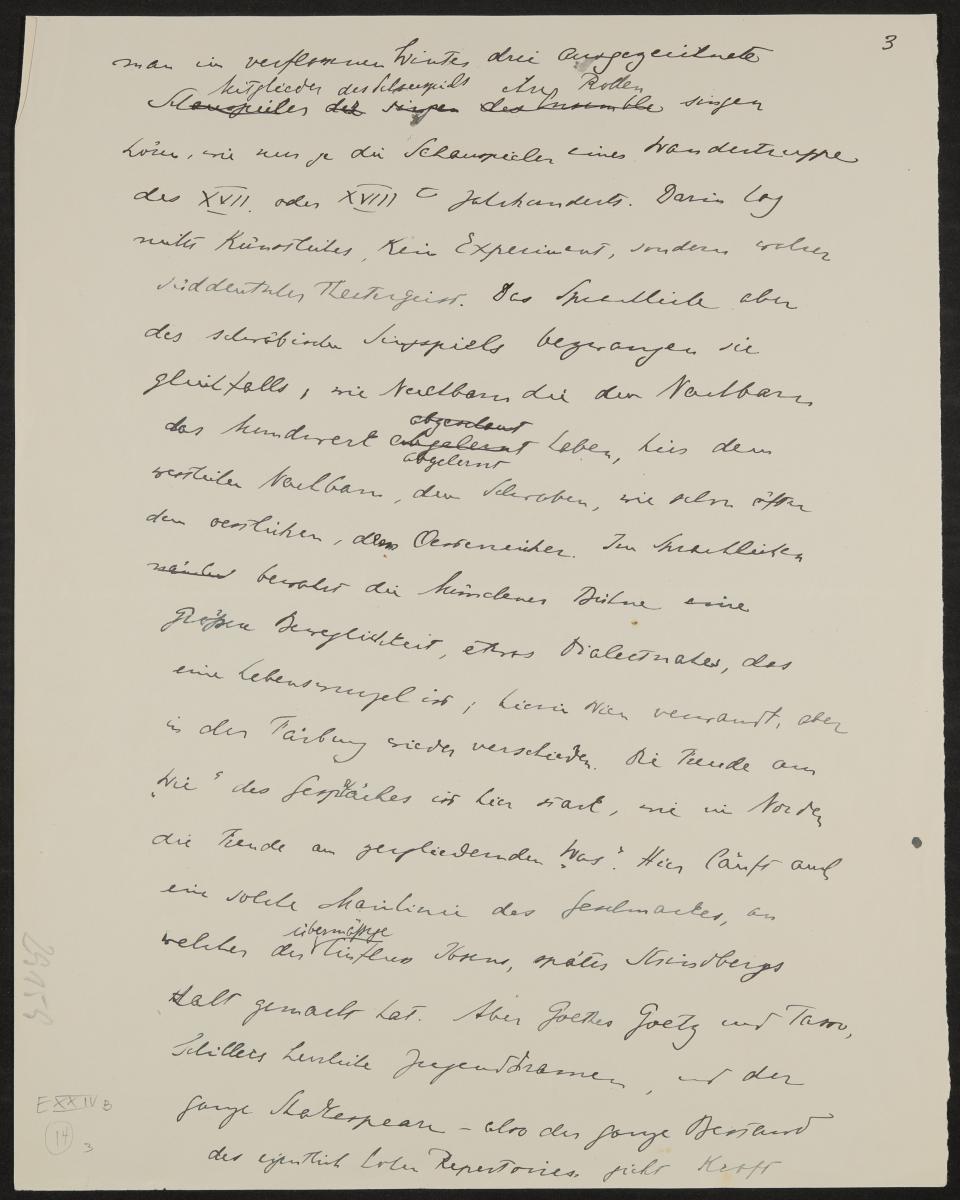 3
man im verflossenen Winter drei ausgezeichnete
Mitglieder des Schauspiels ihre Rollen
Schauspieler der singen des Ensemble singen
hören, wie nur je die Schauspieler einer Wandertruppe
des XVII. oder XVIII Jahrhunderts. Darin lag
nichts Künstliches, kein Experiment, sondern wahrer
süddeutscher Theatergeist. Das Sprachliche aber
des schwäbischen Singspiels bezwangen sie
gleichfalls, wie Nachbarn die dem Nachbarn
abgeschaut
das Mundwerk abgelernt haben, hier dem
abgelernt
westlichen Nachbarn, dem Schwaben, wie schon öfter
dem oestlichen, dem Oesterreicher. Im Sprachlichen
bewahrt die Münchener Bühne eine
größere Beweglichkeit, etwas Dialectnahes, das
eine Lebenswurzel ist; hierin Wien verwandt, aber
in der Färbung wieder verschieden. Die Freude am
„Wie" des Gespräches ist hier stark, wie im Norden
die Freude am zergliedernden „Was". Hier läuft auch
eine solche Mainlinie des Geschmackes, an
übermäßige
welcher der Einfluss Ibsens, später Strindbergs
Halt gemacht hat. Aber Goethes Goetz und Tasso,
Schillers herrliche Jugenddramen, und der
ganze Shakespeare – also der ganze Bestand
des eigentlich hohen Repertoires zieht Kraft
29154
E XXIV B
14
3